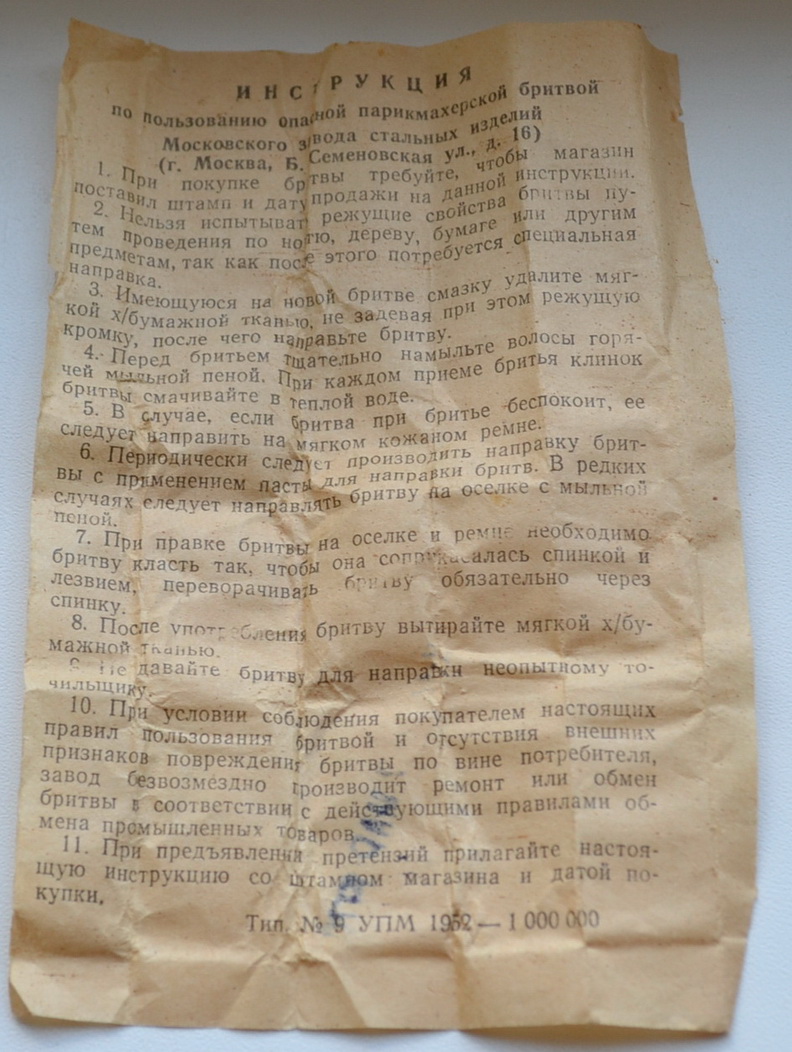 ИНСТРУКЦИЯ
по пользованию опасной парикмахерской бритвой
Московского завода стальных изделий
(г. Москва, Б. Семеновская ул., д. 16)
1. При покупке бритвы требуйте, чтобы магазин
поставил штамп и дату продажи на данной инструкции.
2. Нельзя испытывать режущие свойства бритвы пу-
тем проведения по ногтю, дереву, бумаге или другим
предметам, так как после этого потребуется специальная
направка.
3. Имеющуюся на новой бритве смазку удалите мяг-
кой х/бумажной тканью, не задевая при этом режущую
кромку, после чего направьте бритву.
4. Перед бритьем тщательно намыльте волосы горя-
чей мыльной пеной. При каждом приеме бритья клинок
бритвы смачивайте в теплой воде.
5. В случае, если бритва при бритье беспокоит, ее
следует направить на мягком кожаном ремне.
6. Периодически следует производить направку брит-
вы с применением пасты для направки бритв. В редких
случаях следует направлять бритву на оселке с мыльной
пеной.
7. При правке бритвы на оселке и ремне необходимо
бритву класть так, чтобы она соприкасалась спинкой и
лезвием, переворачивать бритву обязательно через
спинку.
8. После употребления бритву вытирайте мягкой х/бу-
мажной тканью.
9. Не давайте бритву для направки неопытному то-
чильщику.
10. При условии соблюдения покупателем настоящих
правил пользования бритвой и отсутствия внешних
признаков повреждения бритвы по вине потребителя,
завод безвозмездно производит ремонт или обмен
бритвы в соответствии с действующими правилами об-
мена промышленных товаров.
11. При предъявлении претензий прилагайте настоя-
щую инструкцию со штампом магазина и датой по-
купки.
Тип. № 9 УПМ 1952 — 1 000 000